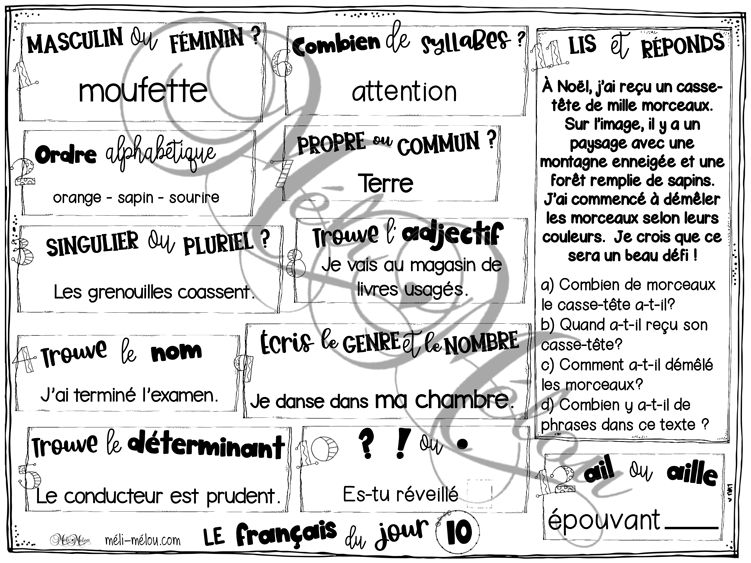 1 MASCULIN ou FÉMININ ?
moufette
2 Ordre alphabétique
orange - sapin - sourire
3 SINGULIER ou PLURIEL ?
Les grenouilles coassent.
4 Trouve le nom
J'ai terminé l'examen.
5 Trouve le déterminant
Le conducteur est prudent.
6 Combien de syllabes ?
attention
7 PROPRE ou COMMUN ?
Terre
8 Trouve l'adjectif
Je vais au magasin de
livres usagés.
9 Écris le GENRE et le NOMBRE
Je danse dans ma chambre.
10 ? ! ou .
Es-tu réveillé
11 LIS et RÉPONDS
À Noël, j'ai reçu un casse-
tête de mille morceaux.
Sur l'image, il y a un
paysage avec une
montagne enneigée et une
forêt remplie de sapins.
J'ai commencé à démêler
les morceaux selon leurs
couleurs. Je crois que ce
sera un beau défi !
a) Combien de morceaux
le casse-tête a-t-il?
b) Quand a-t-il reçu son
casse-tête?
c) Comment a-t-il démêlé
les morceaux?
d) Combien y a-t-il de
phrases dans ce texte ?
12 ail ou aille
épouvant____
Méli-Mélou
méli-mélou.com
LE français du jour 10
Méli Mélou